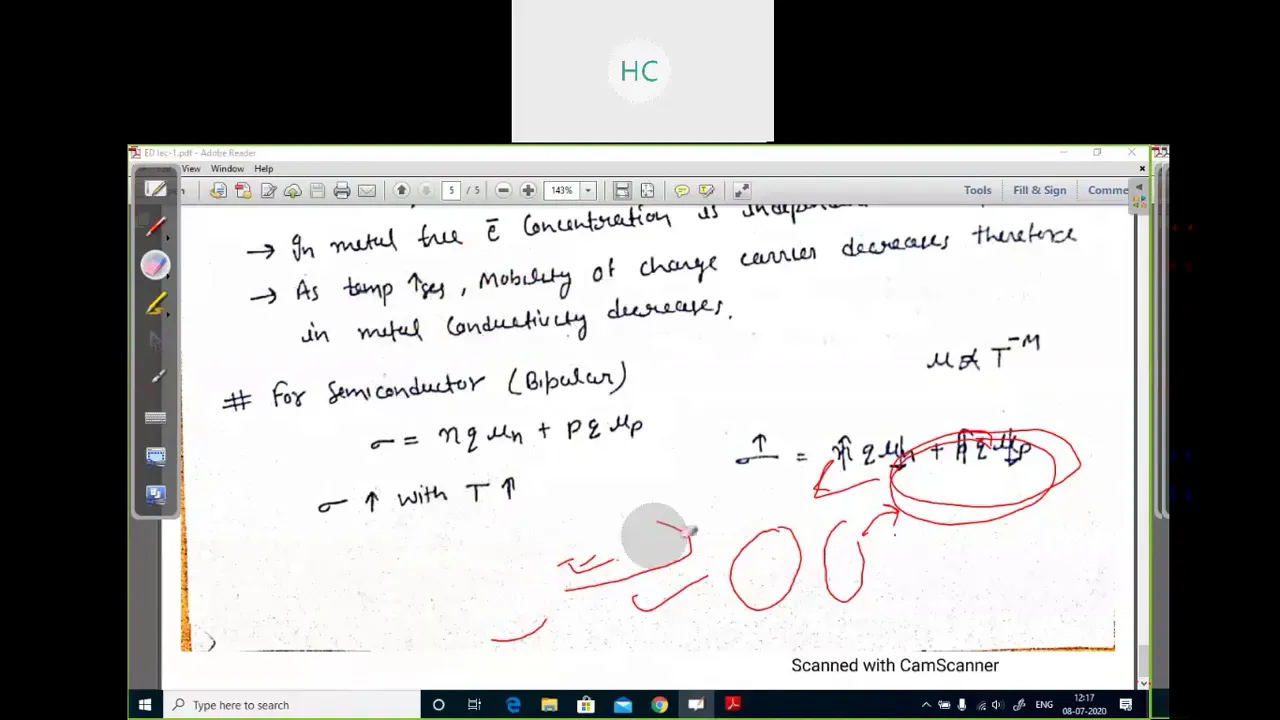 HC
ED lec-1.pdf - Adobe Reader
View Window Help
5 / 5 143% Tools Fill & Sign Comme
→ In metal free ē Concentration is
→ As temp ↑ses, Mobility of charge carrier decreases therefore
in metal Conductivity decreases.
μ ∝ T⁻ᴹ
# For Semiconductor (Bipolar)
σ = nqμn + pqμp
σ↑ = n↑qμ↓n + p↑qμ↓p
σ ↑ with T ↑
Scanned with CamScanner
Type here to search
ENG
12:17
08-07-2020